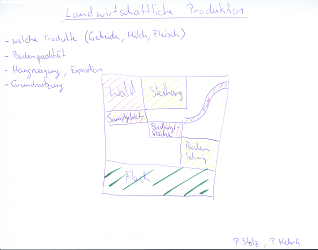 Landwirtschaftliche Produktion
- welche Produkte (Getreide, Milch, Fleisch)
- Bodenqualität
- Hangneigung, Exposition
- Grundnutzung
Wald
Steilhang
Sumpfgebiet
Siedlungs-
fläche
Boden
Flach
P. Stolz, P.